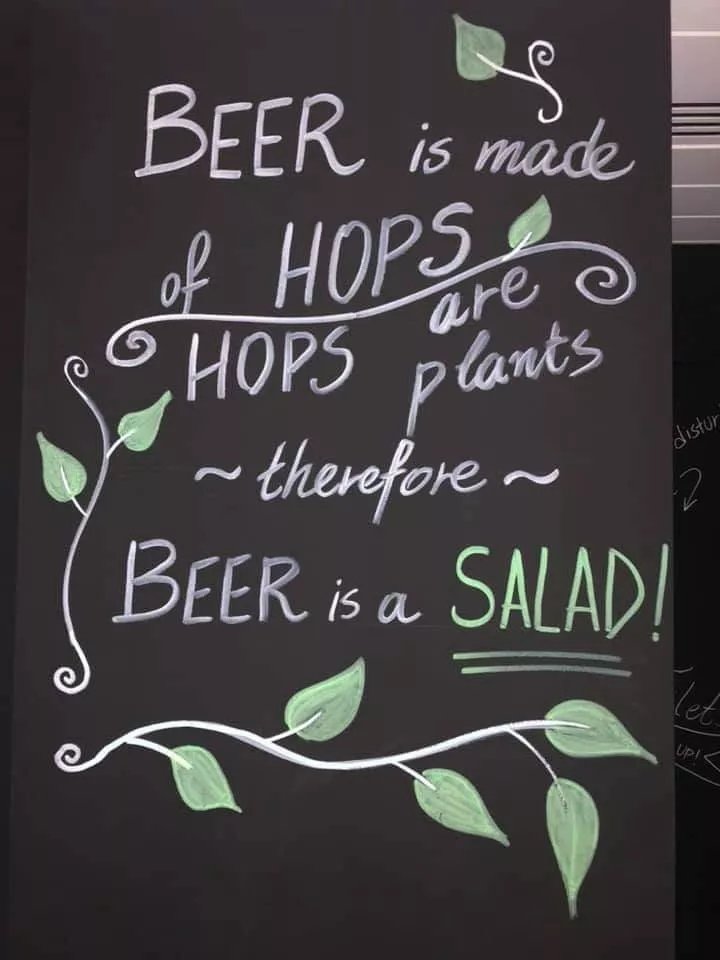 BEER is made
of HOPS
HOPS are
plants
~ therefore ~
BEER is a SALAD!
distur
let
UP!